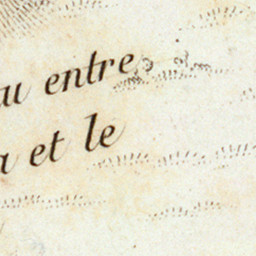 entre
et le